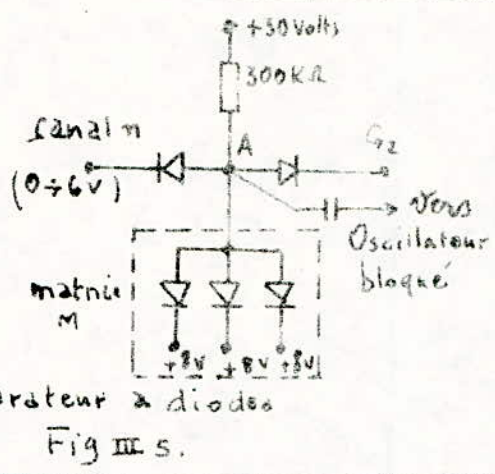 +30 Volts
300KΩ
Canal n
A
G2
(0÷6v)
vers
Oscillateur
bloqué
matrice
M
+8v +8v +8v
rateur à diodes
Fig III 5.